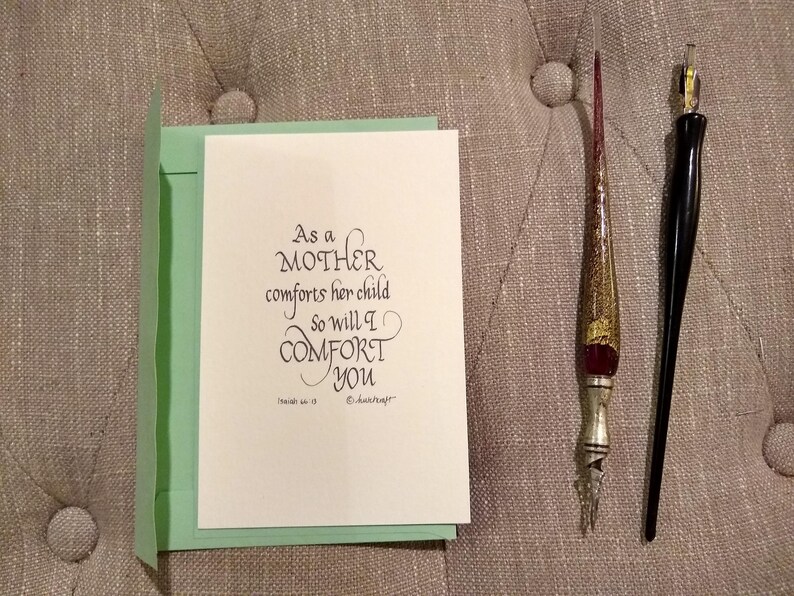 As a
MOTHER
comforts her child
so will I
COMFORT
YOU
Isaiah 66:13 ©